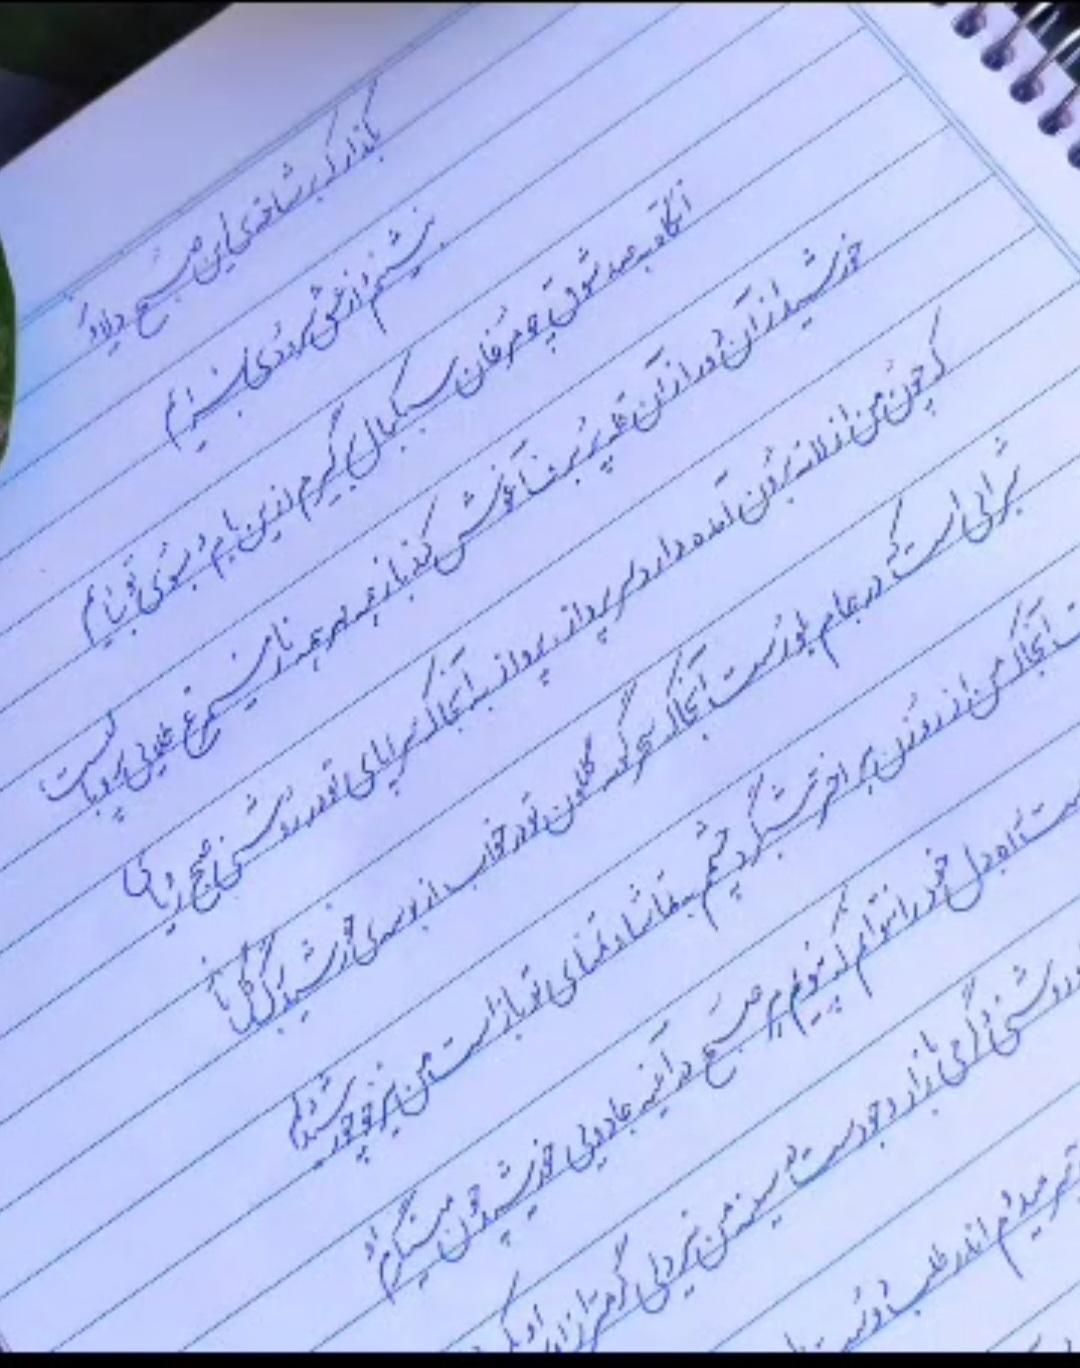 بگذار که بر شاخه‌ی این صبح دلاویز
بنشینم و از عشق سرودی بسرایم
آنگاه به صد شوق چو مرغان سبکبال پر گیرم ازین بام و بسوی تو بیایم
خورشید از آن دور از آن قله پر برف آغوش کند باز همه مهر همه ناز سیمرغ طلایی پر و بالیست
که چون من از لانه برون آمده دارد سر پرواز پرواز به آنجا که سراپای تو در روشنی صبح رویای
شرابی است که در جام بلورست آنجا که سحر گونه گلگون تو در خواب از بوسه‌ی خورشید برگ گل ناز
آنجا که من از روزن هر اختر شبگرد چشمم به تماشا و تمنای تو باز است من نیز چو خورشید دلم
ست راه دل خود را نتوانم که نپویم هر صبح در آئینه جادویی خورشید چون مینگرم او
روشنی و گرمی بازار وجودست در سینه من نیز دلی گرمتر از او
سر میدوم اندر طلب دوست